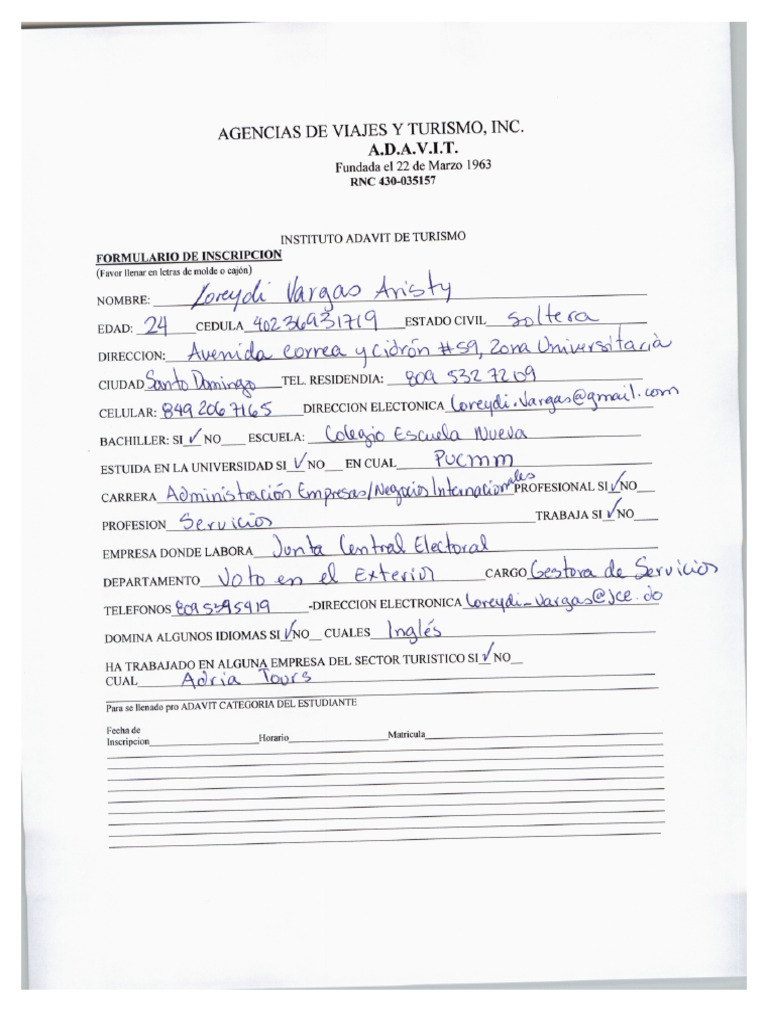 AGENCIAS DE VIAJES Y TURISMO, INC.
A.D.A.V.I.T.
Fundada el 22 de Marzo 1963
RNC 430-035157
INSTITUTO ADAVIT DE TURISMO
FORMULARIO DE INSCRIPCION
(Favor llenar en letras de molde o cajón)
NOMBRE: Loreydi Vargas Aristy
EDAD: 24 CEDULA 40236931719 ESTADO CIVIL Soltera
DIRECCION: Avenida Correa y Cidrón #59, Zona Universitaria
CIUDAD Santo Domingo TEL. RESIDENDIA: 809 532 7209
CELULAR: 849 206 7165 DIRECCION ELECTONICA loreydi.vargas@gmail.com
BACHILLER: SI ✓ NO ESCUELA: Colegio Escuela Nueva
ESTUIDA EN LA UNIVERSIDAD SI ✓ NO EN CUAL PUCMM
CARRERA Administración Empresas/Negocios Internacionales PROFESIONAL SI ✓ NO
PROFESION Servicios TRABAJA SI ✓ NO
EMPRESA DONDE LABORA Junta Central Electoral
DEPARTAMENTO Voto en el Exterior CARGO Gestora de Servicios
TELEFONOS 809 5395419 -DIRECCION ELECTRONICA loreydi_vargas@jce.do
DOMINA ALGUNOS IDIOMAS SI ✓ NO CUALES Inglés
HA TRABAJADO EN ALGUNA EMPRESA DEL SECTOR TURISTICO SI ✓ NO
CUAL Adria Tours
Para se llenado pro ADAVIT CATEGORIA DEL ESTUDIANTE
Fecha de
Inscripcion Horario Matricula